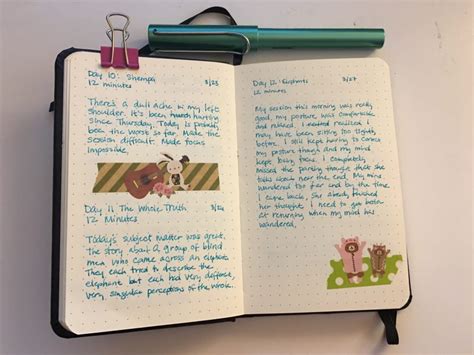 Day 10: Shempa 3/23
12 minutes
There's a dull ache in my left
shoulder. It's been hurting
since Thursday. Today is probably
been the worst so far. Made the
session difficult. Made focus
impossible.
Day 11: The Whole Truth 3/26
12 Minutes
Today's subject matter was great.
The story about a group of blind
men who come across an elephant.
They each tried to describe the
elephant but each had very different,
very singular perceptions of the whole.
Day 12: Elephants 3/27
12 minutes
My session this morning was really
good, my posture was comfortable
and relaxed. I realized I
may have been sitting too rigidly
before. I still kept having to correct
my posture though and my mind
kept busy. I completely
missed the parting thought that she
talks about near the end. My mind
wandered too far and by the time
I came back, she already finished
her thought. I need to get better
at returning when my mind has
wandered.